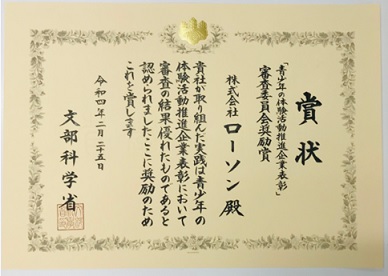 賞状
「青少年の体験活動推進企業表彰」
審査委員会奨励賞
株式会社 ローソン 殿
貴社が取り組んだ実践は青少年の
体験活動推進企業表彰において
審査の結果優れたものであると
認められましたここに奨励のため
これを賞します
令和四年二月二十五日
文部科学省